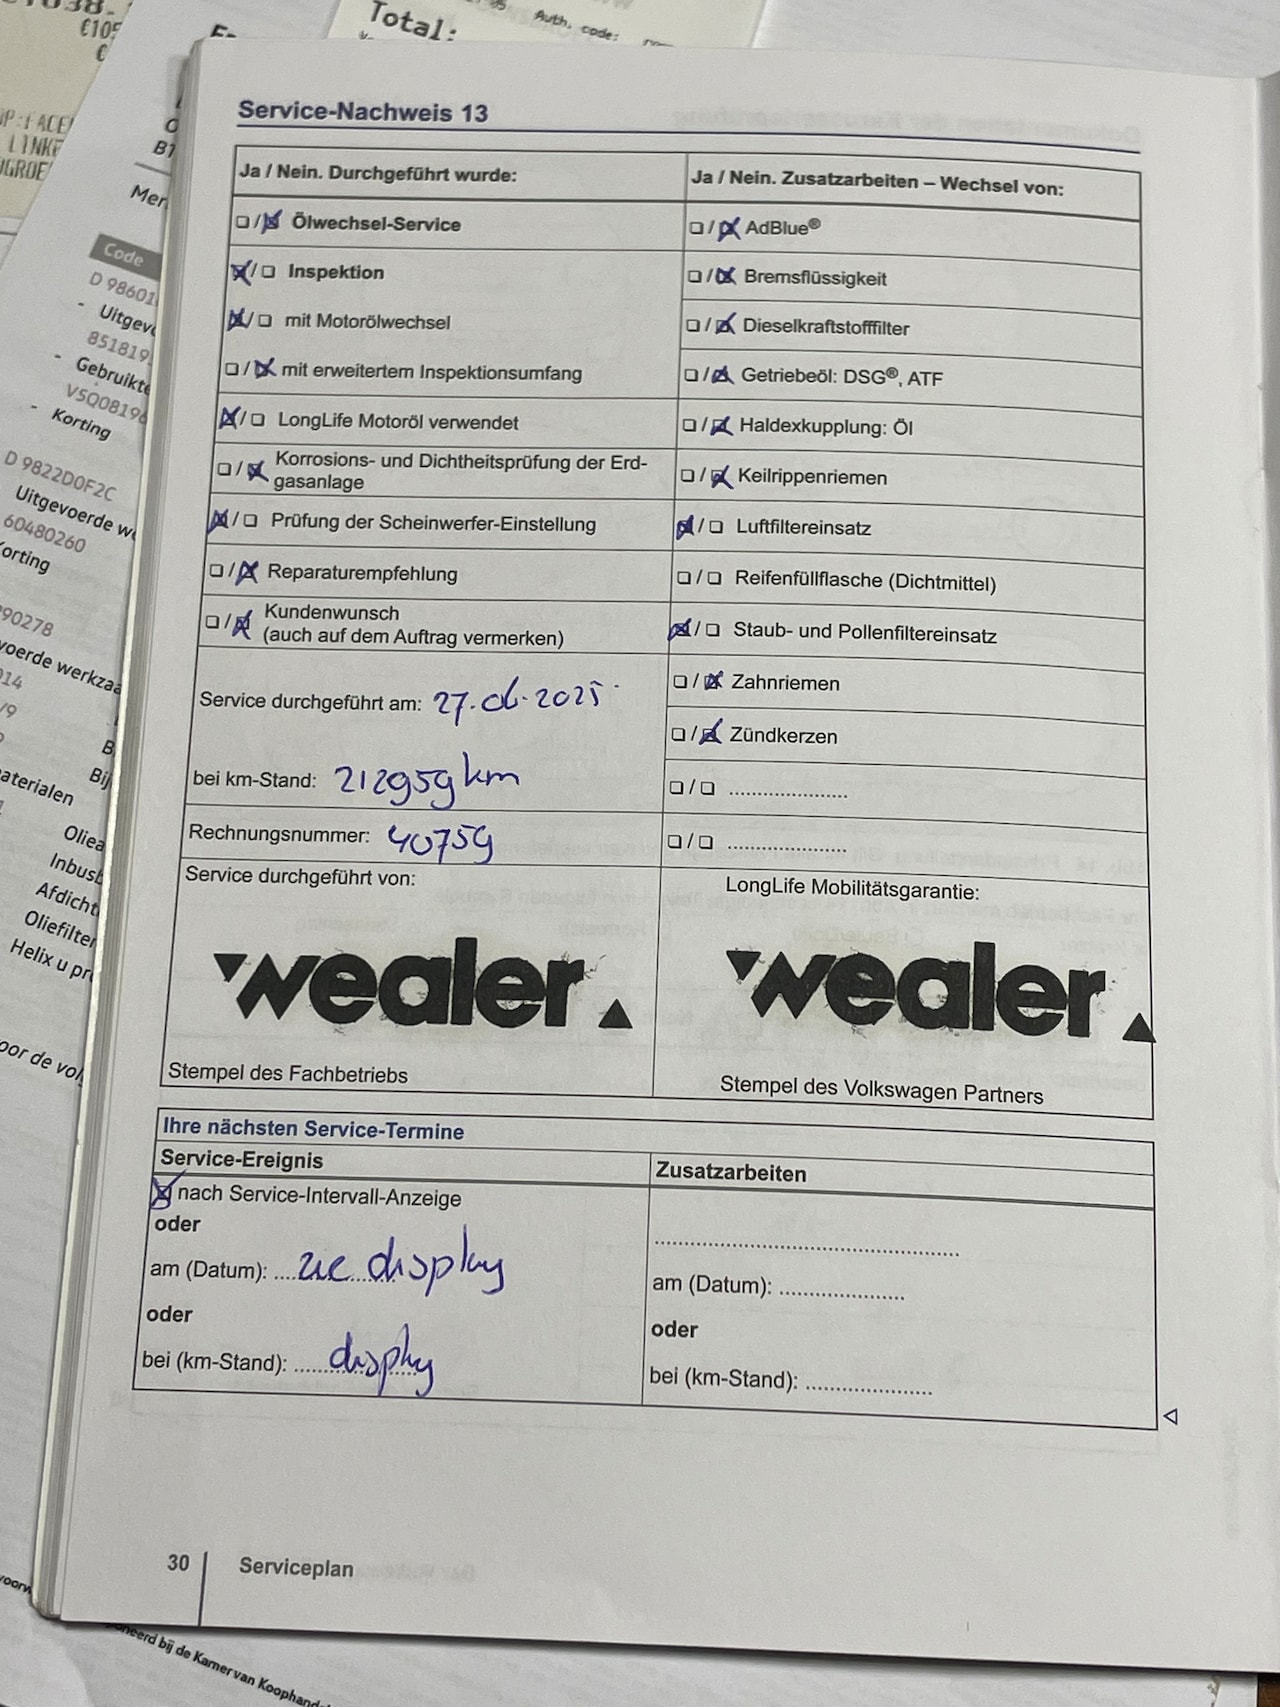 Total:
Auth. code:
€105
LINKE
Code
D 98601
- Uitgevo
851819
- Gebruikte
V5Q0819
- Korting
D 9822D0F2C
Uitgevoerde we
60480260
Korting
90278
voerde werkzaa
014
materialen
Bij
Oliea
Inbusb
Afdicht
Oliefilter
Helix u pr
oor de vol
Service-Nachweis 13
Ja / Nein. Durchgeführt wurde:
☐/☒ Ölwechsel-Service
☒/☐ Inspektion
☒/☐ mit Motorölwechsel
☐/☒ mit erweitertem Inspektionsumfang
☒/☐ LongLife Motoröl verwendet
☐/☒ Korrosions- und Dichtheitsprüfung der Erd-
gasanlage
☒/☐ Prüfung der Scheinwerfer-Einstellung
☐/☒ Reparaturempfehlung
☐/☒ Kundenwunsch
(auch auf dem Auftrag vermerken)
Service durchgeführt am: 27.06.2025
bei km-Stand: 212959 km
Rechnungsnummer: 40759
Service durchgeführt von:
wealer
Stempel des Fachbetriebs
Ja / Nein. Zusatzarbeiten – Wechsel von:
☐/☒ AdBlue®
☐/☒ Bremsflüssigkeit
☐/☒ Dieselkraftstofffilter
☐/☒ Getriebeöl: DSG®, ATF
☐/☒ Haldexkupplung: Öl
☐/☒ Keilrippenriemen
☒/☐ Luftfiltereinsatz
☐/☐ Reifenfüllflasche (Dichtmittel)
☒/☐ Staub- und Pollenfiltereinsatz
☐/☒ Zahnriemen
☐/☒ Zündkerzen
☐/☐ .....................
☐/☐ .....................
LongLife Mobilitätsgarantie:
wealer
Stempel des Volkswagen Partners
Ihre nächsten Service-Termine
Service-Ereignis
☒ nach Service-Intervall-Anzeige
oder
am (Datum): zie display
oder
bei (km-Stand): display
Zusatzarbeiten
am (Datum): .....................
oder
bei (km-Stand): .....................
30 Serviceplan
oneerd bij de Kamer van Koophande